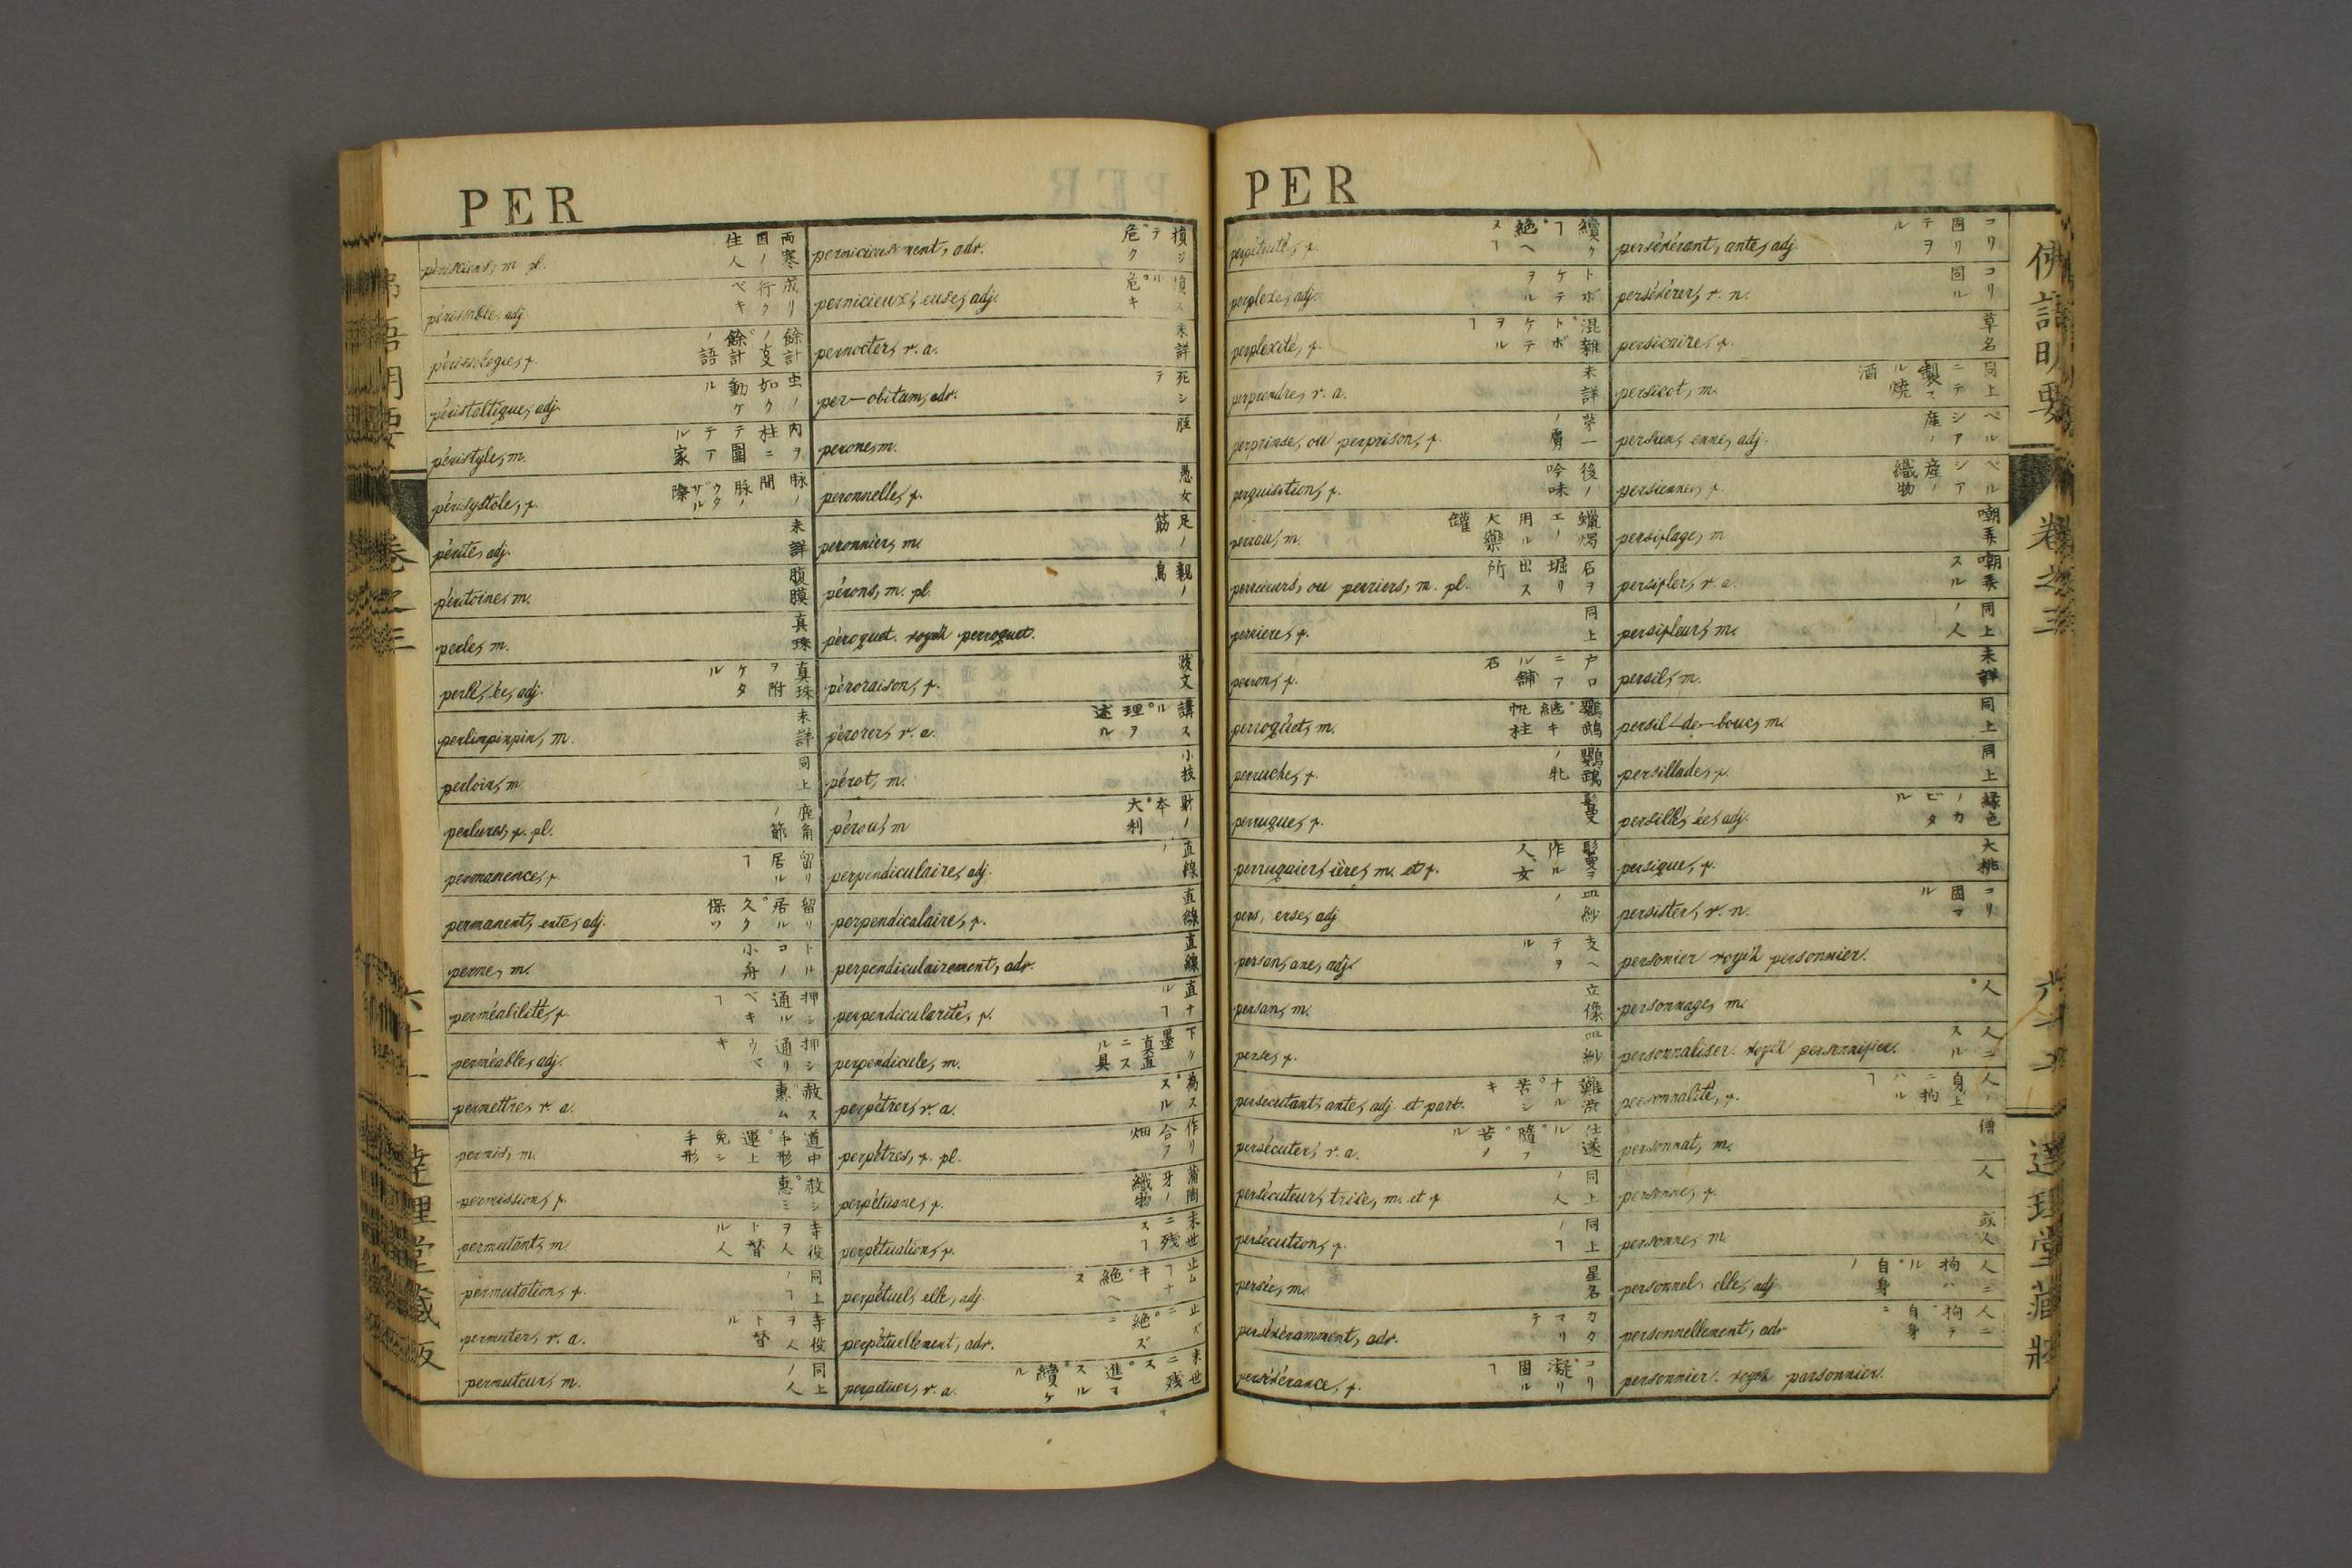 PER
périsciens, m. pl. 両寒国ノ住人
périssable, adj. 成リ行クベキ
périssologie, f. 餘計ノ夏。餘計ノ語
péristaltique, adj. 虫ノ如ク動ケル
péristyle, m. 内ヲ柱ニテ圍テアル家
périsystole, f. 脉ノ間
périte, adj. 未詳
péritoine, m. 腹膜
perle, m. 真珠
perlé, ée, adj. 真珠ヲ附ケタル
perlimpinpin, m. 未詳
perloir, m. 同上
perlures, f. pl.
permanence, f. 留リ居ルヿ
permanent, ente, adj. 留リ居ル。久ク保ツ
perme, m. トルコノ小舟
perméabilité, f. 押シ通ルベキヿ
perméable, adj. 押シ通リウベキ
permettre, v. a. 赦ス。恵ム
permis, m. 道中手形。運上免シ手形
permission, f. 赦シ。恵ミ
permutant, m. 寺役ヲ人ト替ル人
permutation, f. 同上ノヿ
permuter, v. a. 寺役ヲ人ト替ル
permuteur, m. 同上ノ人
pernicieusement, adv. 損ジテ。危ク
pernicieux, euse, adj. 危キ
pernocter, v. a. 未詳
per-obitum, adv. 死シテ
perone, m.
peronnelle, f. 愚女
peronnier, m. 足ノ筋
pérons, m. pl. 親ノ鳥
péroquet. voyez perroquet.
péroraison, f. 跋文
pérorer, v. a. 講スル。理ヲ述ル
pérot, m. 小枝
pérou, m. 財ノ本。大利
perpendiculaire, adj. 直線ノ
perpendiculaire, f. 直線
perpendiculairement, adv. 直線
perpendicularité, f. 直ナルヿ
perpendicule, m.
perpétrer, v. a. 為ス。スル
perpètres, f. pl. 作リ合フ畑
perpétuane, f. 葡萄牙ノ織物
perpétuation, f. 末世ニ残スヿ
perpétuel, elle, adj. 止ムヿナキ。絶ヘス
perpétuellement, adv. 止ズニ。絶ズニ
perpetuer, v. a. 末世ニ残ス。進マス。續ケル
PER
perpétuité, f. 續クヿ。絶ヘヌヿ
perplexe, adj. トボケテヲル
perplexité, f. 混雜。トボケテヲルヿ
perprendre, v. a. 未詳
perprinse, ou perprison, f.
perquisition, f. 後ノ吟味
perrau, m. 蠟燭エノ用ル大藥罐
perrieurs, ou perriers, m. pl. 石ヲ堀リ出ス所
perriere, f. 同上
perron, f. 戸口ニアル舗石
perroquet, m. 鸚鵡。継キ帆柱
perruche, f. 鸚鵡ノ牝
perruque, f. 髲
perruquier, ière, m. et f.
pers, erse, adj.
persan, ane, adj. 支ヘテヲル
persan, m. 立像
perse, f. 皿紗
persecutant, ante, adj. et part. 難渋ナル。苦シキ
persécuter, v. a.
persécuteur, trice, m. et f. 同上ノ人
persécution, f. 同上ノヿ
persée, m. 星名
persévéramment, adv. カタマリテ
persévérance, f. コリ。凝リ固ルヿ
persévérant, ante, adj. コリ固リテヲル
persévérer, v. n. コリ固ル
persicaire, f. 草名
persicot, m. 同上ニテ製スル焼酒
persien, enne, adj. ペルシア産ノ
persienne, f. ペルシア産ノ織物
persiflage, m. 嘲弄
persifler, v. a. 嘲弄スル
persifleur, m. 同上ノ人
persil, m. 未詳
persil-de-bouc, m. 同上
persillade, f. 同上
persillé, ée, adj. 緑色ノカビタル
persique, f. 大桃
persister, v. n. コリ固マル
personier voyez personnier.
personnage, m. 人。
personnaliser. voyez personnifier. 人ニスル
personnalité, f. 人ノ身上ニ拘ハルヿ
personnat, m. 僧
personne, f. 人
personne, m. 或人
personnel, elle, adj. 人ニ拘ハル。自身ノ
personnellement, adv. 人ニ拘テ。自身ニ
personnier. voyez parsonnier.
佛語明要 卷之三 達理堂藏版